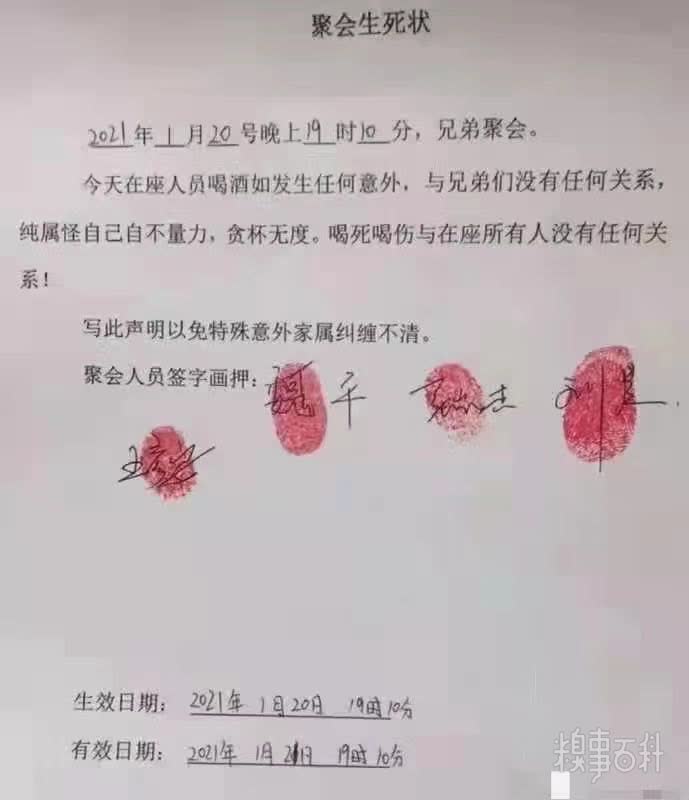 聚会生死状
2021年1月20号晚上19时10分，兄弟聚会。
今天在座人员喝酒如发生任何意外，与兄弟们没有任何关系，
纯属怪自己自不量力，贪杯无度。喝死喝伤与在座所有人没有任何关
系！
写此声明以免特殊意外家属纠缠不清。
聚会人员签字画押：
生效日期：2021年1月20日 19时10分
有效日期：2021年1月21日 19时10分
糗事百科